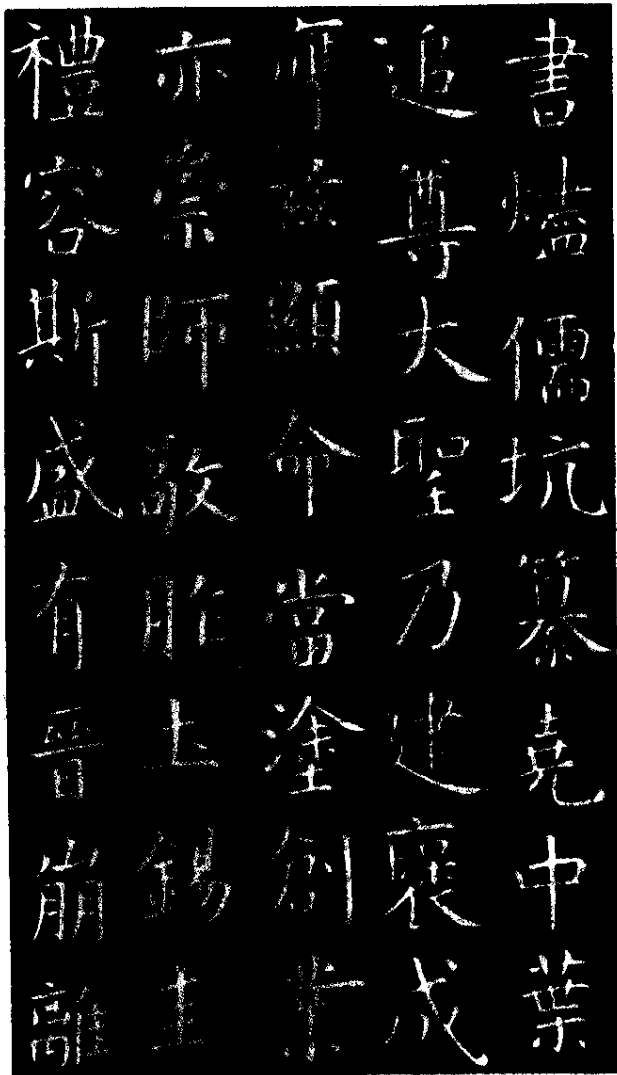 書燼儒坑纂堯中葉
追尊大聖乃建褒成
茲顯命當塗創業
亦崇師敬胙土錫圭
禮容斯盛有晉崩離